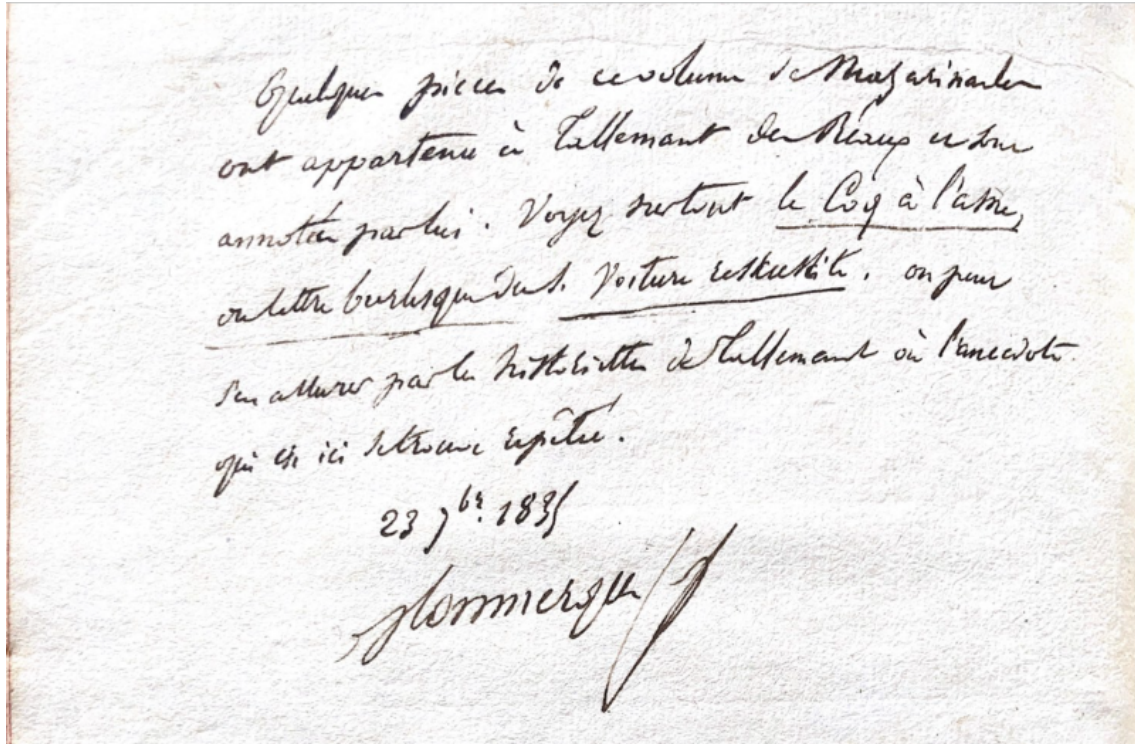 Quelques pieces de ce volume de Mazarinades
ont appartenu à Tallemant des Réaux et sont
annotées par lui. Voyez surtout le Coq à l'asne,
ou lettre burlesque du S. Voiture ressuscité. on peut
s'en assurer par les historiettes de Tallemant où l'anecdote
qui est ici se trouve repétée.
23 7bre. 1835
Monmerqué